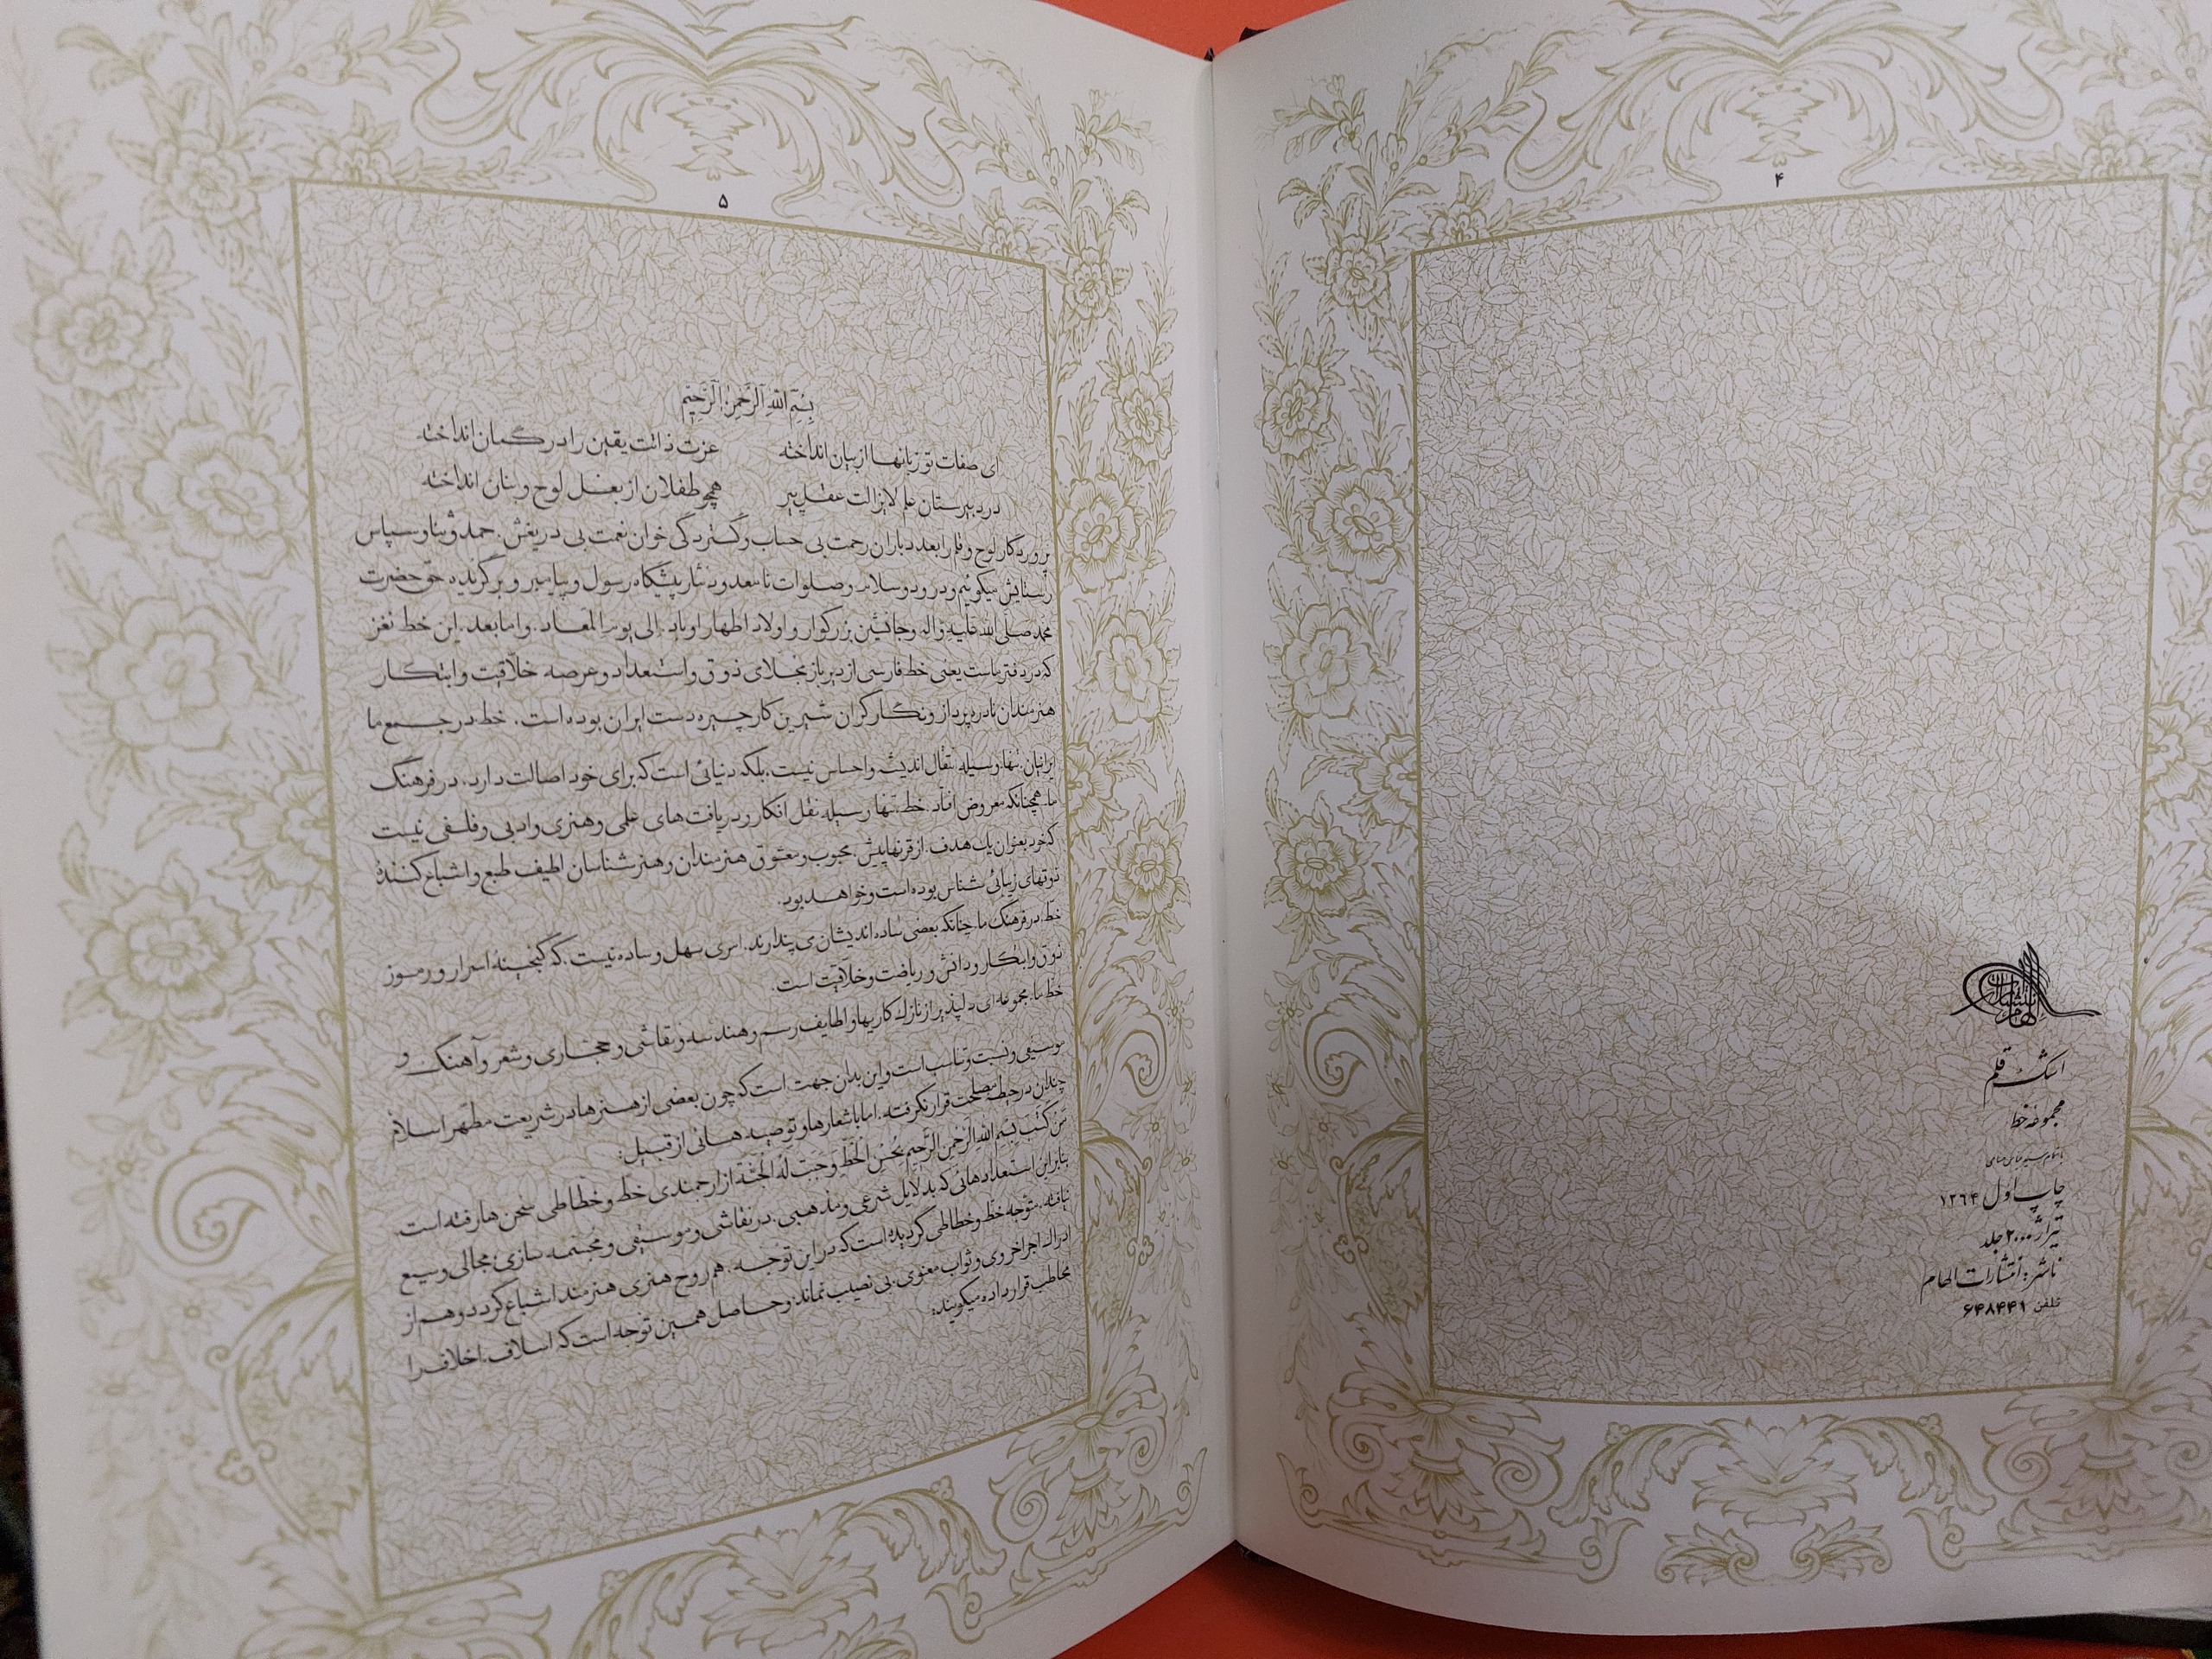 ۴
انتشارات الهام
اشک قلم
مجموعه خط
چاپ اول ۱۳۶۴
تیراژ ۲۰۰۰ جلد
ناشر: انتشارات الهام
تلفن ۶۴۸۴۴۱
۵
بِسْمِ اللهِ الرَّحْمٰنِ الرَّحِیْمِ
ای صفات تو زبانها از بیان انداخته عزت ذاتت یقین را در گمان انداخته
در دبیرستان علم لایزالت عقل پیر همچو طفلان از بغل لوح و بنان انداخته
پروردگار لوح و قلم را بعدد باران رحمت بی حساب و گستردگی خوان نعمت بی دریغش، حمد و ثنا و سپاس
و ستایش میگوئیم و درود و سلام و صلوات نامعدود نثار پیشگاه رسول و پیامبر و برگزیده حق حضرت
محمد صلی الله علیه و آله و جانشین بزرگوار و اولاد اطهار او باد. الی یوم المعاد. و اما بعد، این خط نغز
که در دفتر ماست یعنی خط فارسی از دیرباز مجلای ذوق و استعداد و عرصه خلاقیت و ابتکار
هنرمندان نادره پرداز و نگارگران شیرین کار چیره دست ایران بوده است. خط در جمع ما
ایرانیان، تنها وسیله انتقال اندیشه و احساس نیست، بلکه دنیائی است که برای خود اصالت دارد، در فرهنگ
ما، همچنانکه معروض افتاد، خط، تنها وسیله نقل افکار و دریافت های علمی و هنری و ادبی و فلسفی نیست
که خود بعنوان یک هدف، از قرنها پیش، محبوب و معشوق هنرمندان و هنرشناسان لطیف طبع و اشباع کنندهٔ
ذوقهای زیبائی شناس بوده است و خواهد بود.
خط، در فرهنگ ما، چنانکه بعضی ساده اندیشان می پندارند، امری سهل و ساده نیست، که گنجینهٔ اسرار و رموز
ذوق و ابتکار و دانش و ریاضت و خلاقیت است.
خط ما، مجموعه ای دلپذیر از نازک کاریها و لطایف رسم و هندسه و نقاشی و حجاری و شعر و آهنگ و
موسیقی و نسبت و تناسب است و این بدان جهت است که چون بعضی از هنرها در شریعت مطهر اسلام
چندان در حیطه مصلحت قرار نگرفته، اما با شعارها و توصیه هائی از قبیل:
مَنْ کَتَبَ بِسْمِ اللهِ الرَّحْمٰنِ الرَّحِیْمِ بِحُسْنِ الْخَطِّ وَجَبَتْ لَهُ الْجَنَّة از ارجمندی خط و خطاطی سخن ها رفته است
بنابراین استعدادهائی که بدلایل شرعی و مذهبی، در نقاشی و موسیقی و مجسمه سازی، مجالی وسیع
نیافته، متوجه خط و خطاطی گردیده است که در این توجه، هم روح هنری هنرمند اشباع گردد و هم از
ادراک اجر اخروی و ثواب معنوی، بی نصیب نماند، و حاصل همین توجه است که اسلاف، اخلاف را
مخاطب قرار داده میگویند: